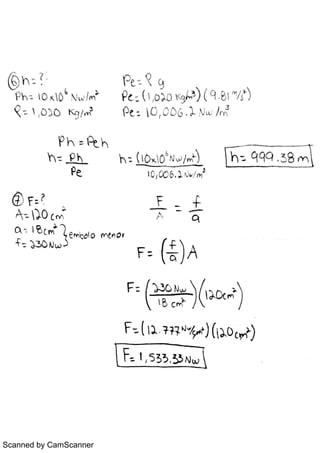 ⑥ h=?
Pe=ρ g
Ph= 10x10⁶ Nw/m²
Pe= (1,020 Kg/m³) (9.81 m/s²)
ρ= 1,020 Kg/m³
Pe= 10,006.2 Nw/m³
Ph = Pe h
h= Ph/Pe
h= (10x10⁶ Nw/m²)/10,006.2 Nw/m³
h= 999.38 m
⑦ F=?
A= 120 cm²
a= 18cm² } émbolo menor
f= 230Nw
F/A = f/a
F= (f/a) A
F= (230 Nw/18 cm²)(120cm²)
F= (12.777 Nw/cm²)(120 cm²)
F= 1,533.33 Nw
Scanned by CamScanner